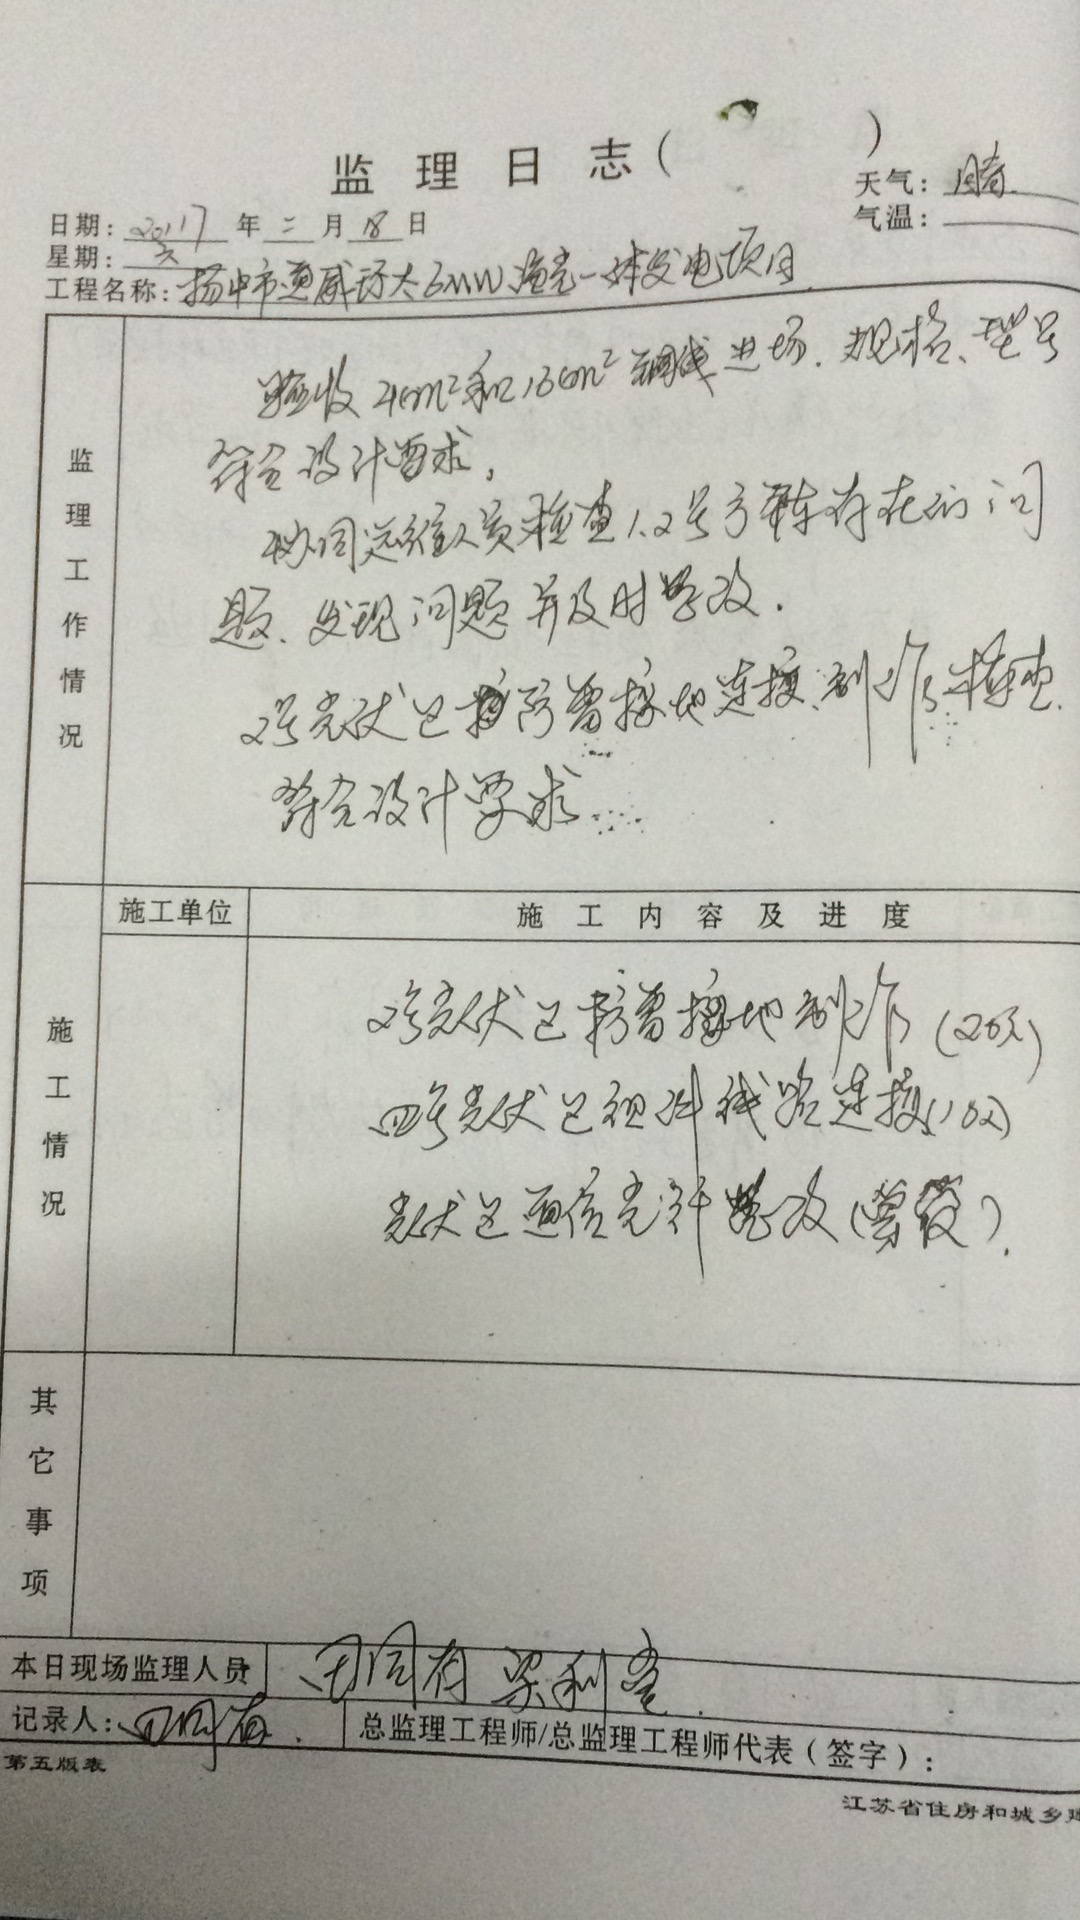 监理日志（ ）
天气：晴
日期：2017年二月18日
气温：
星期：六
工程名称：扬中市通威环太6MW渔光一体发电项目
监理工作情况
验收4cm²和16cm²铜线进场、规格、型号
符合设计要求。
协同运维人员检查1.2号方阵存在的问
题、发现问题并及时整改.
2号光伏区防雷接地连接、制作检查.
符合设计要求
施工单位
施工内容及进度
施工情况
2号光伏区防雷接地制作(20人)
四号光伏区组件线路连接(10人)
光伏区通信光纤整改
其它事项
本日现场监理人员 田同有 梁利
记录人：田同有. 总监理工程师/总监理工程师代表（签字）：
第五版表
江苏省住房和城乡建